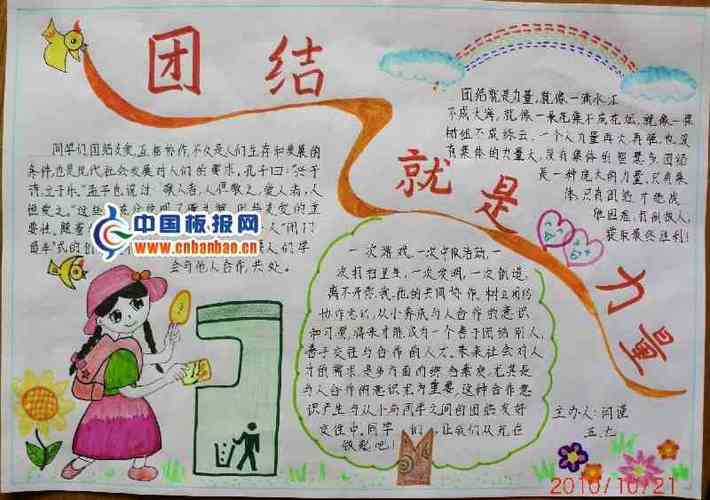 团 结
就是
力量
同学们团结友爱,互相协作,不仅是人们生存和发展的
条件,也是现代社会发展对人们的要求,孔子曰:"兴于
诗,立于乐"孟子也说过:"敬人者,人恒敬之,爱人者,人
恒爱之。"这些
要性。随着
式的创 们学
会与他人合作,共处。
中国板报网
www.cnbanbao.cn
团结就是力量,就像一滴水汇
不成大海,就像一朵花聚不成花坛,就像一棵
树组不成森林,一个人力量再大再强,也没
有集体的力量大,没有集体的智慧多团结
是一种强大的力量,只有集
体,只有团结才能战
胜困难,
获取最终胜利!
一次游戏,一次中队活动,一
次打扫卫生,一次发明,一次创造,
离不开你、我、他的共同协作。树立团结
协作意识,从小养成与人合作的意识
和习惯,将来才能成为一个善于团结别人,
善于交往与合作的人才。未来社会对人
才的需求是多方面的综合素质,尤其是
与人合作的意识尤为重要,这种合作意
识产生与从小与同学之间的团结友好
交往中,同学们,让我们从现在
做起吧!
主办人:
五
2010/10/21